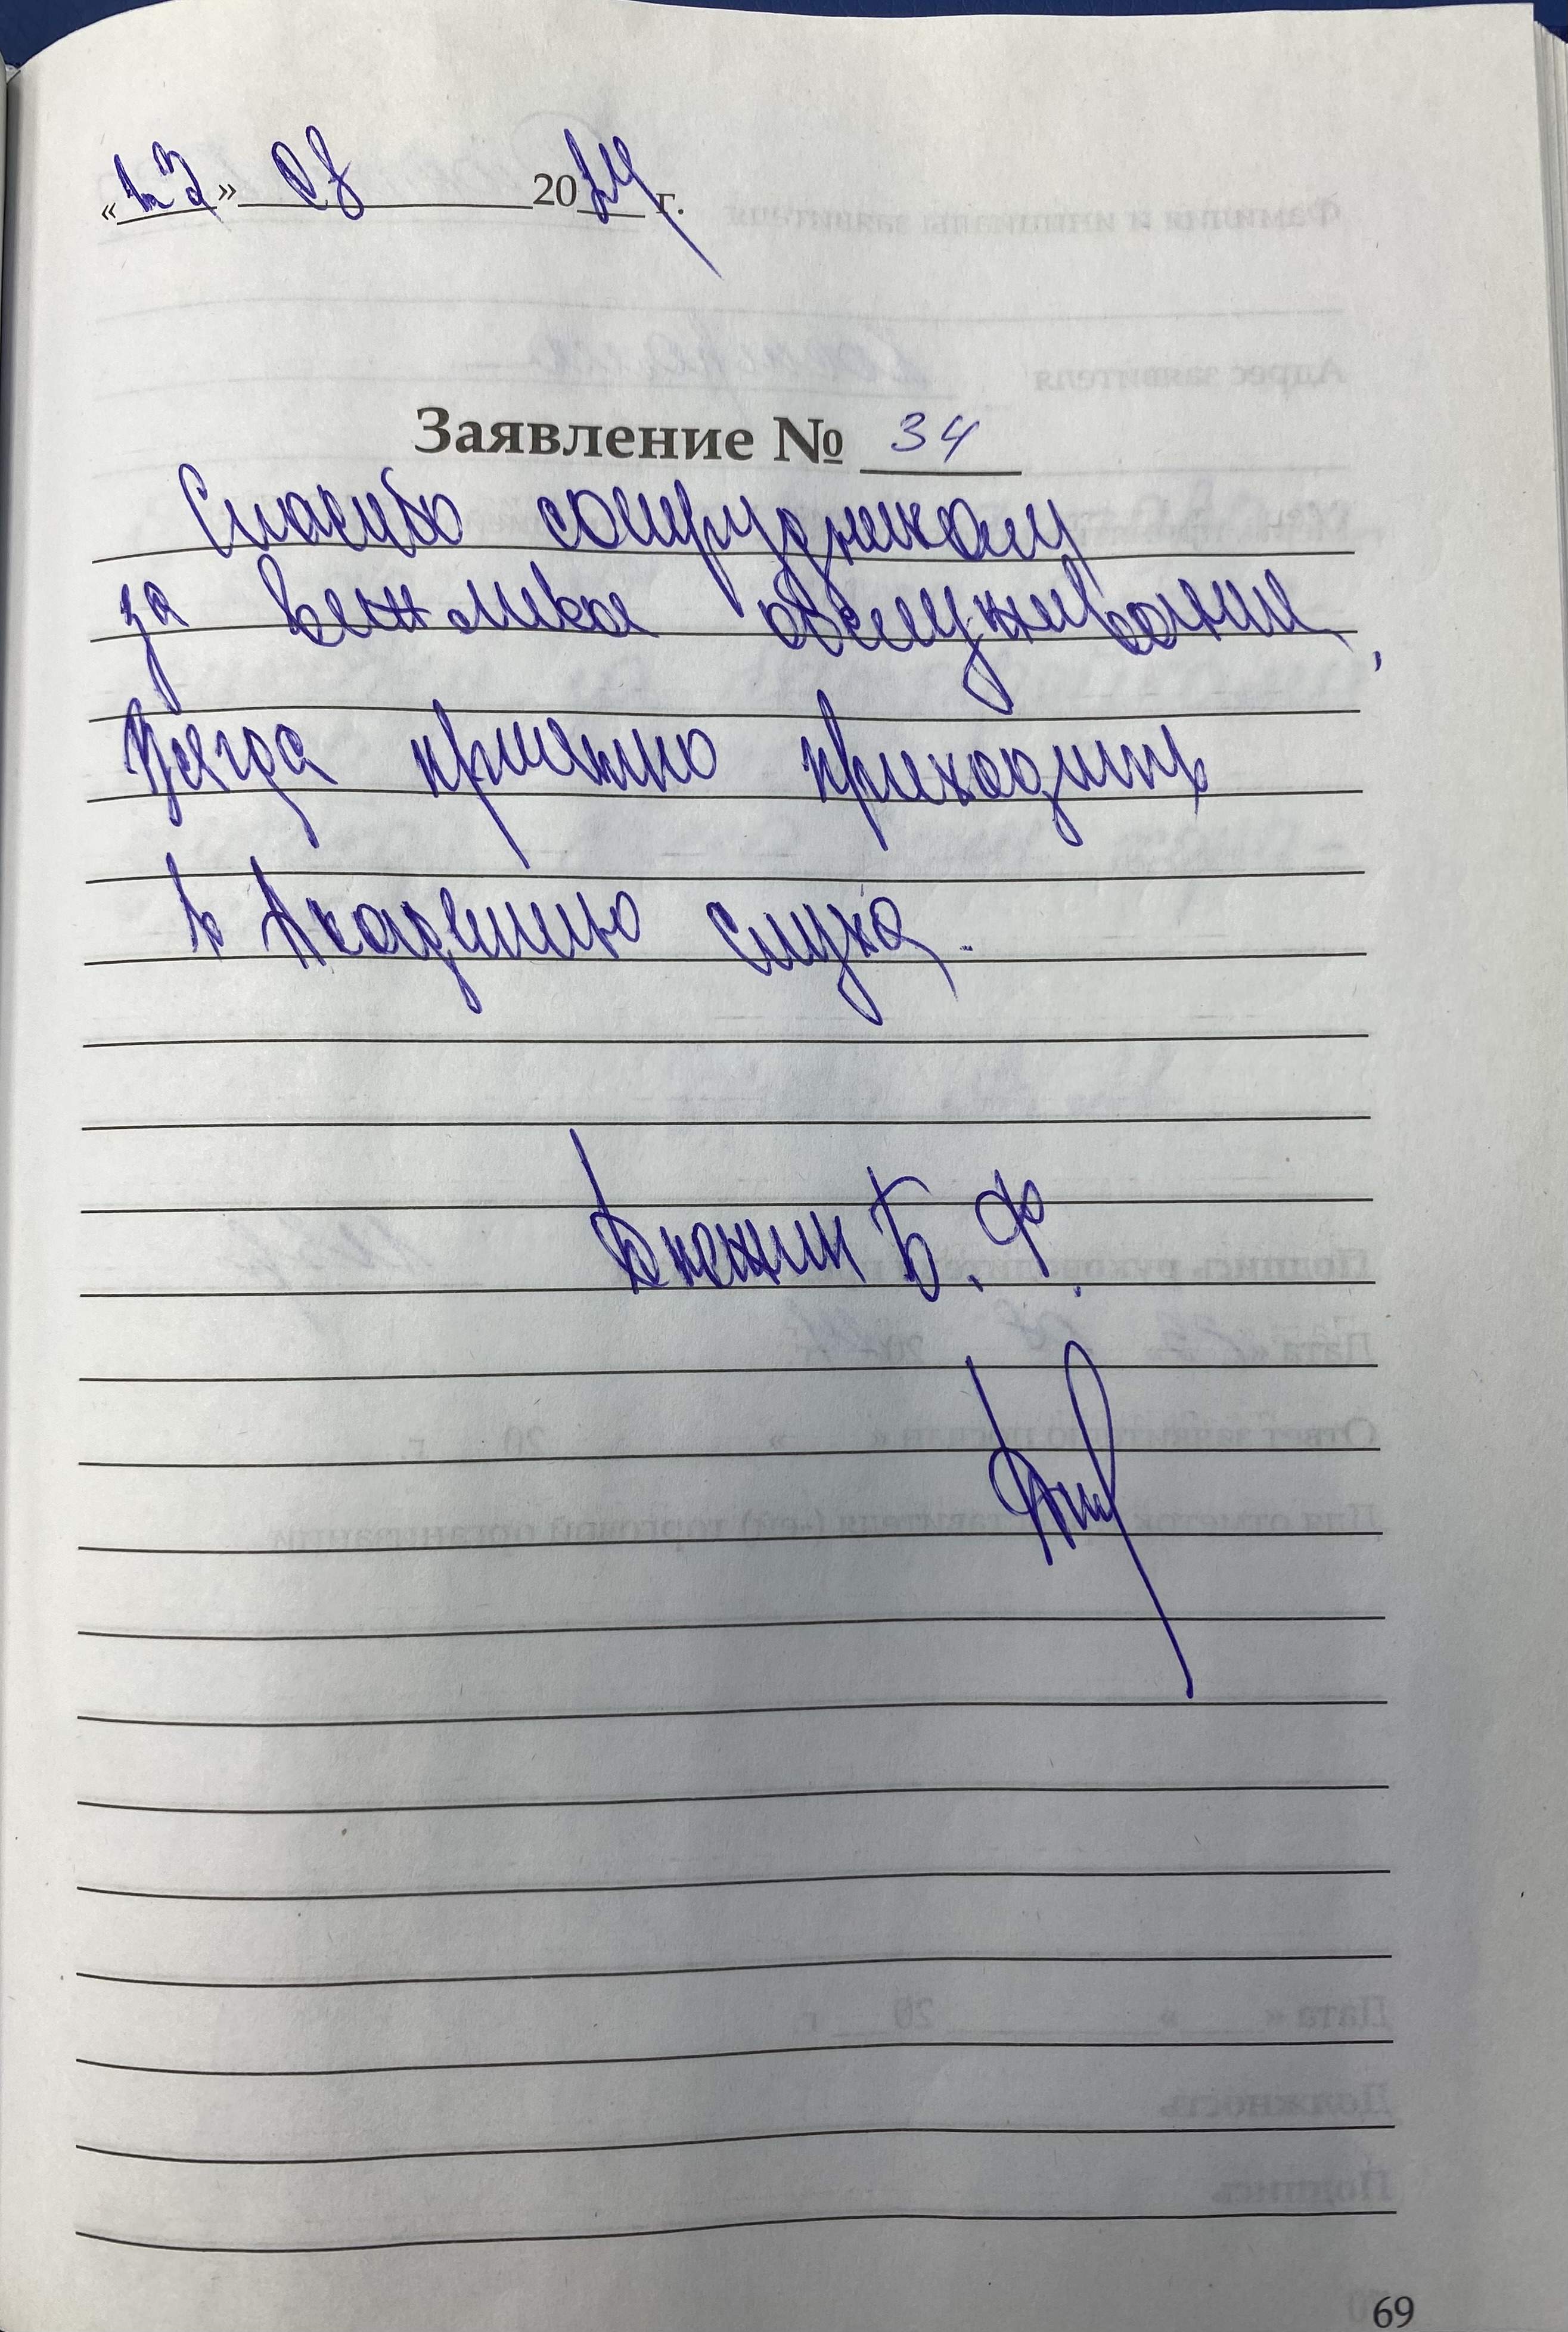 « » 2024 г.
Заявление № 34
Спасибо сотрудникам
за вежливое обслуживание,
Всегда приятно приходить
в Академию слуха.
Б. Ф.
69